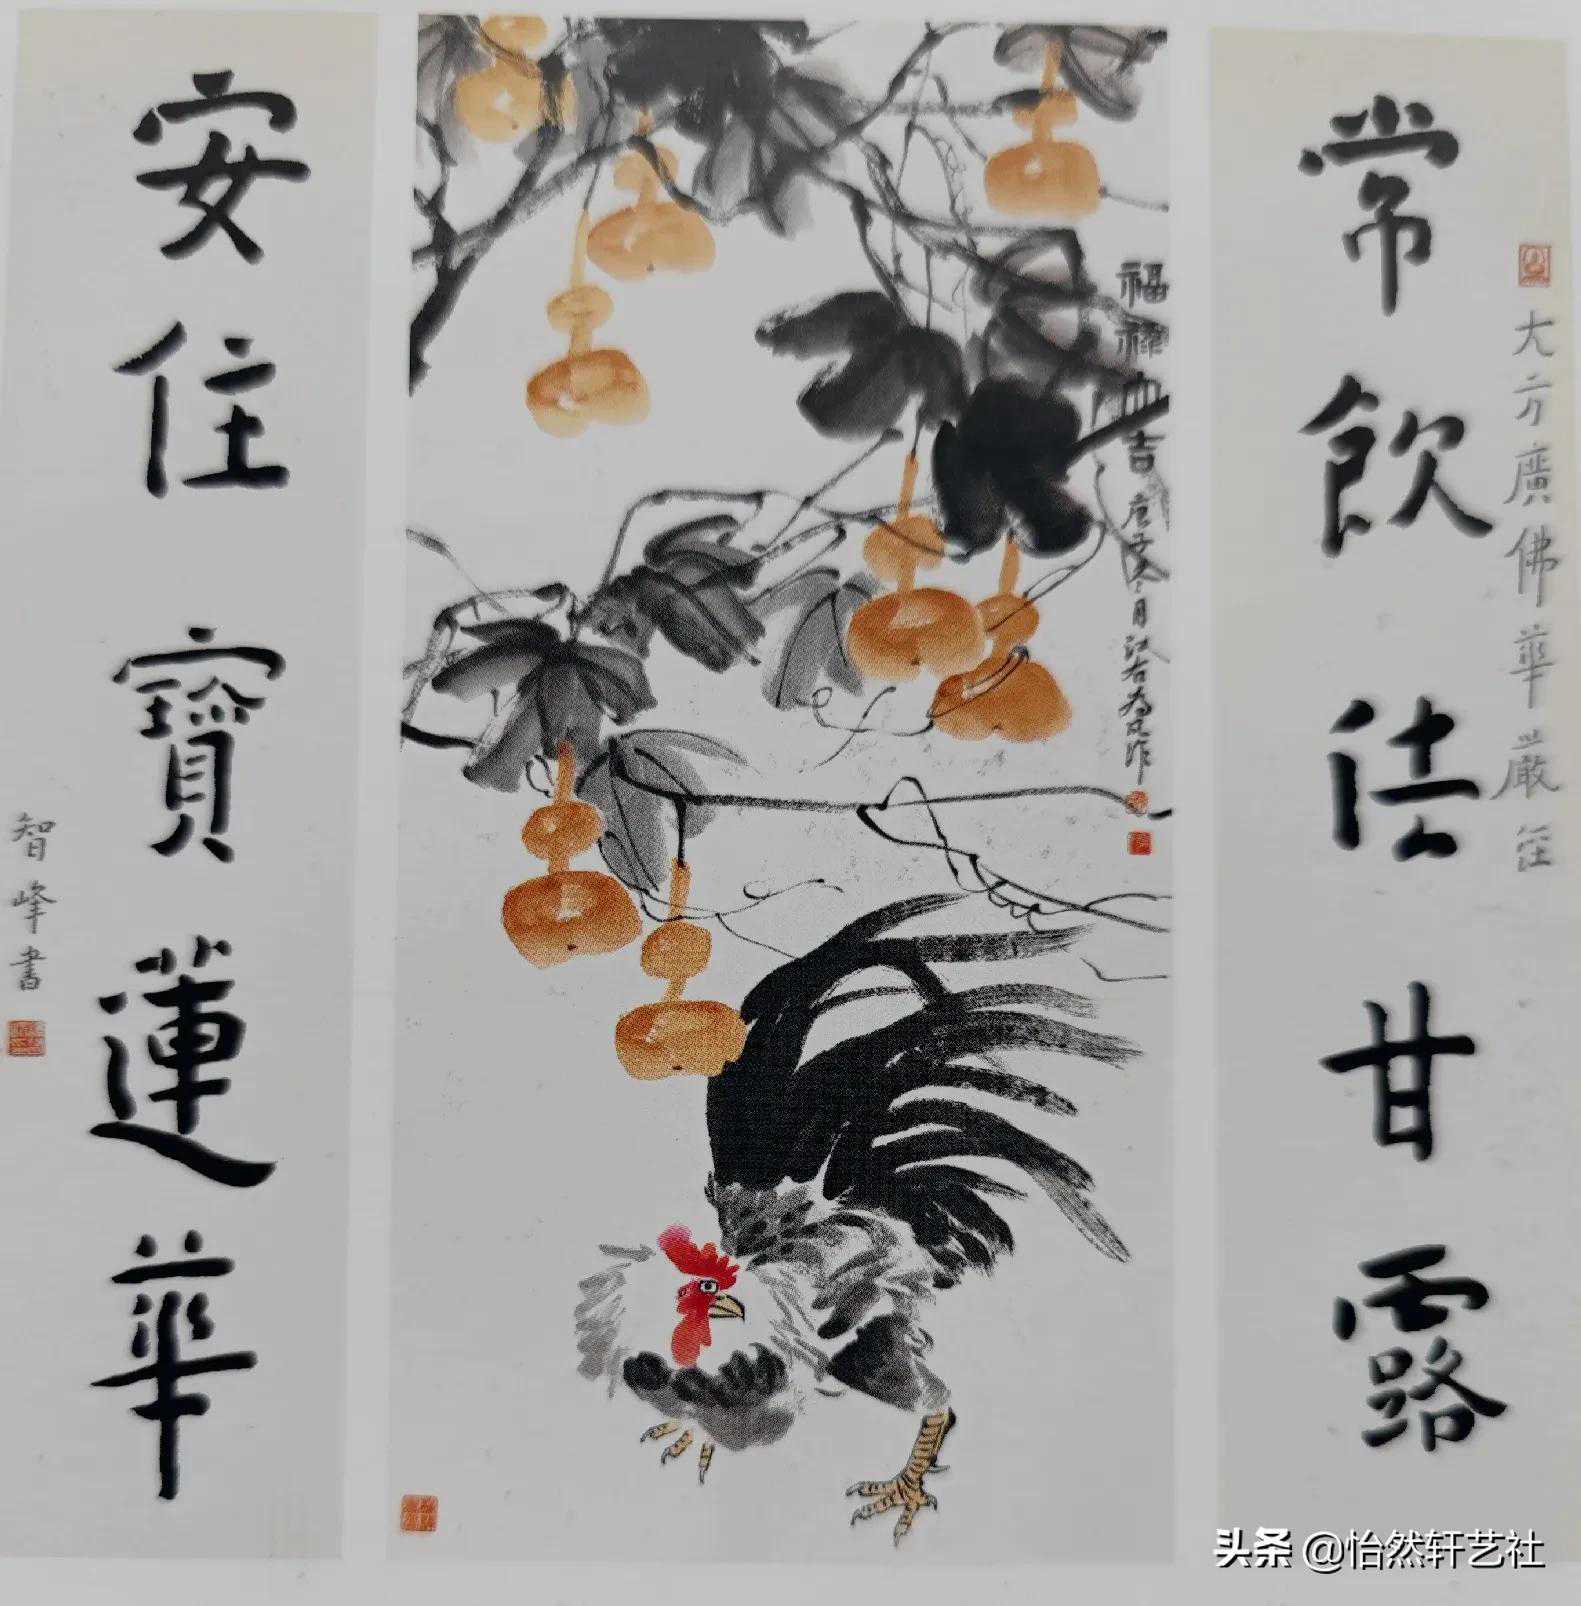 大方廣佛華嚴經
常飲法甘露
福祿大吉
庚子冬月江右作
安住寶蓮華
智峰書
头条 @怡然轩艺社